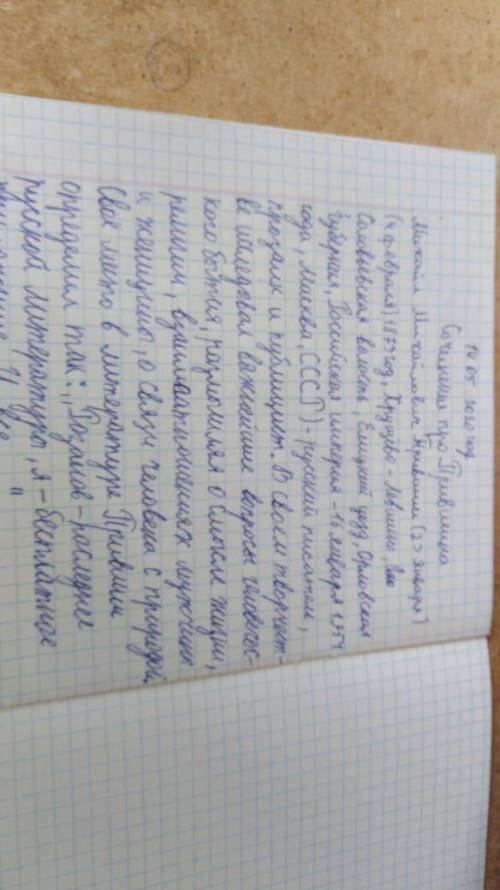 14 05 2020 год
Сочинение про Пришвина
Михаил Михайлович Пришвин (23 января)
(4 февраля) 1873 год, Хрущево - Левшино,
Соловьевская волость, Елецкий уезд, Орловская
губерния, Российская империя - 16 января 1954
года, Москва, СССР) - русский писатель,
прозаик и публицист. В своем творчест-
ве исследовал важнейшие вопросы человечес-
кого бытия, размышлял о смысле жизни,
религии, взаимоотношениях мужчины
и женщины, о связи человека с природой
Свое место в литературе Пришвин
определил так: „Розанов - последнее
русской литературы, я - бесплатное
приложение